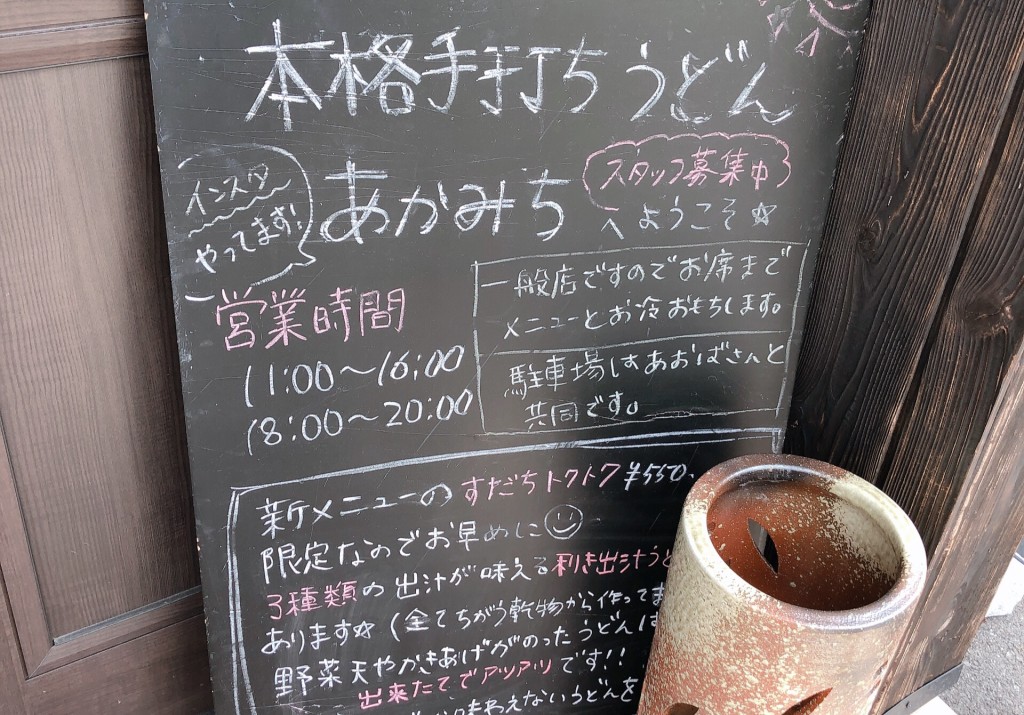 本格手打ちうどん
インスタ
やってます!
あかみち
スタッフ募集中
へようこそ☆
営業時間
11:00〜16:00
18:00〜20:00
一般店ですのでお席まで
メニューとお冷おもちします。
駐車場はあおばさんと
共同です。
新メニューのすだちトクトク¥550.
限定なのでお早めに☺
3種類の出汁が味える利き出汁うど
あります☆(全てちがう乾物から作ってま
野菜天やかきあげがのったうどんは
出来たてでアツアツです!!
味わえないうどんを